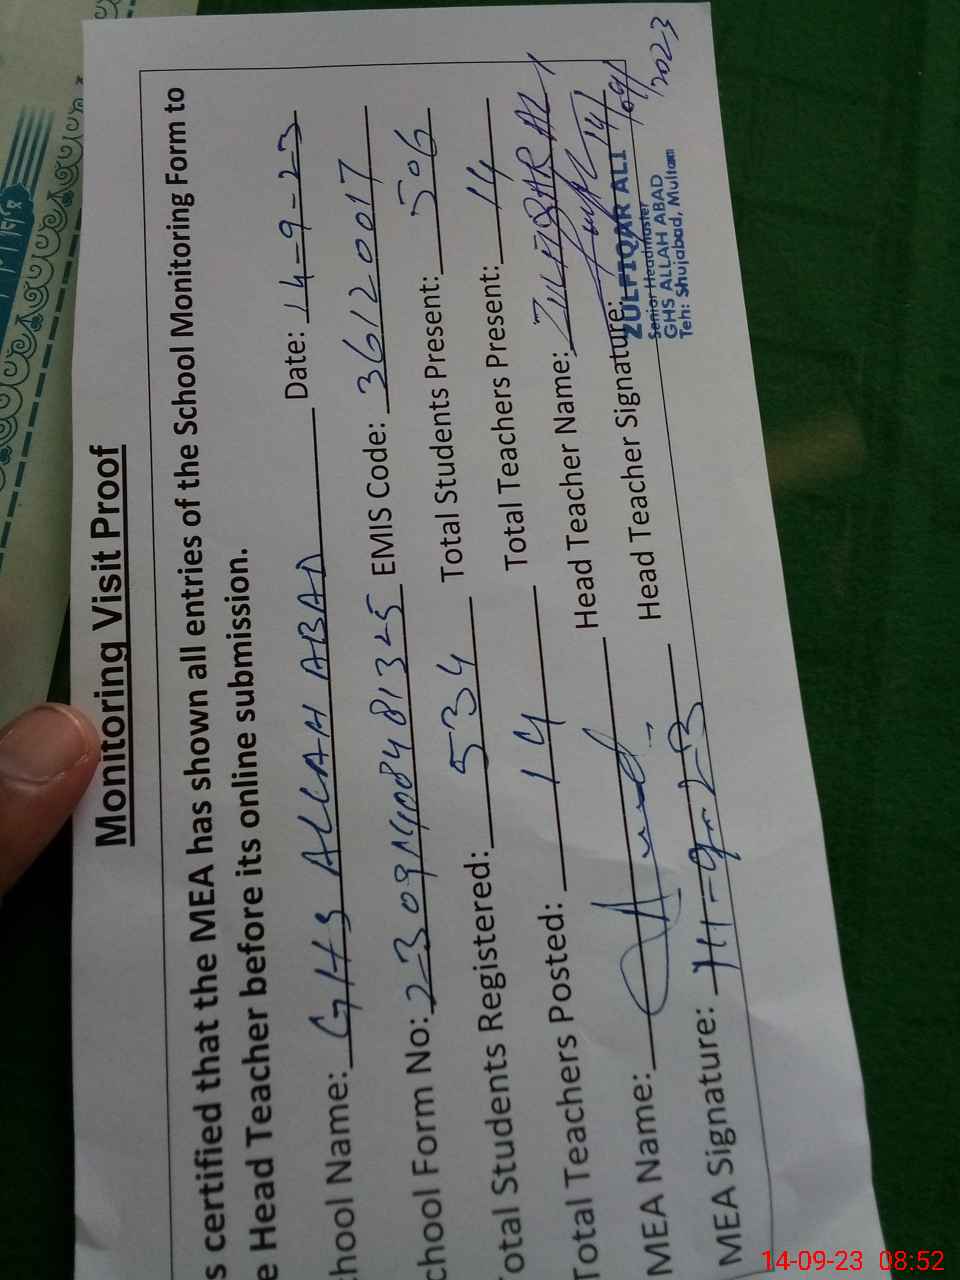 Monitoring Visit Proof
s certified that the MEA has shown all entries of the School Monitoring Form to
e Head Teacher before its online submission.
hool Name: GHS ALLAH ABAD Date: 14-9-23
chool Form No: EMIS Code: 36120017
otal Students Registered: 534 Total Students Present: 506
Total Teachers Posted: 14 Total Teachers Present: 14
MEA Name: Head Teacher Name: ZULFIQAR ALI
MEA Signature: Head Teacher Signature: 14/09/2023
ZULFIQAR ALI
Senior Headmaster
GHS ALLAH ABAD
Teh: Shujabad, Multan
14-09-23 08:52